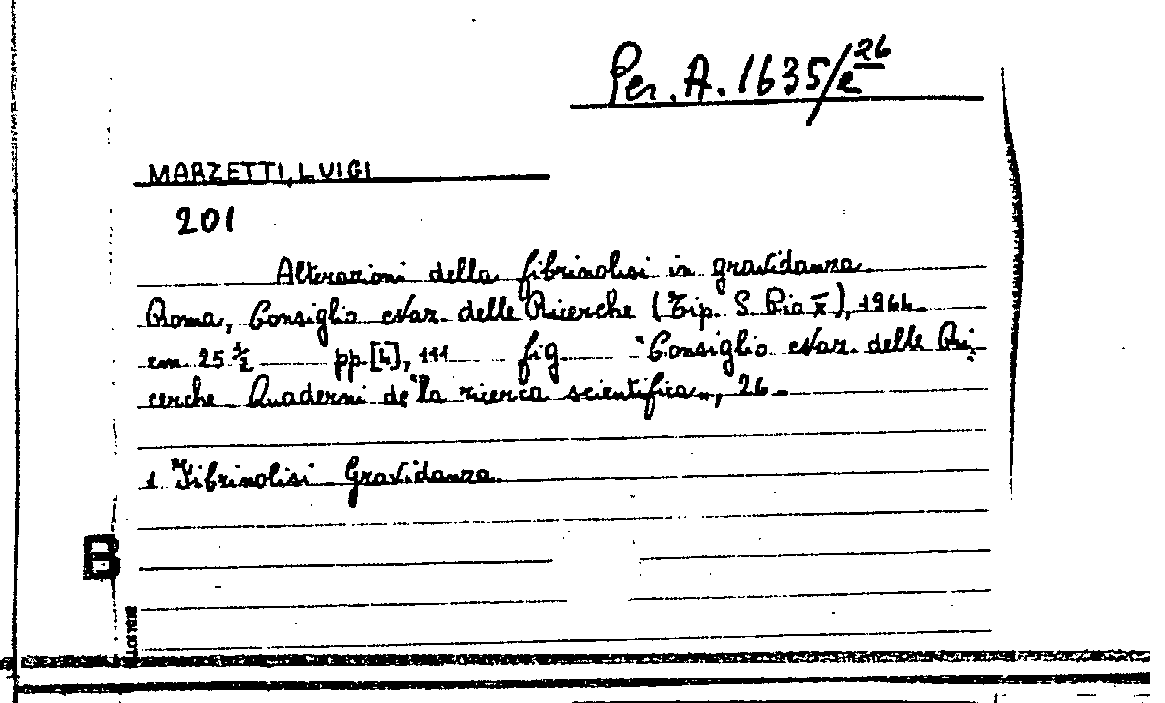 Per. A. 1635/e 26
MARZETTI, LUIGI
201
Alterazioni della fibrinolisi in gravidanza.
Roma, Consiglio Naz. delle Ricerche (Tip. S. Pio X), 1964.
cm 25 ½ pp. [4], 111 fig. "Consiglio Naz. delle Ri-
cerche Quaderni de "la ricerca scientifica", 26.
1. Fibrinolisi Gravidanza.